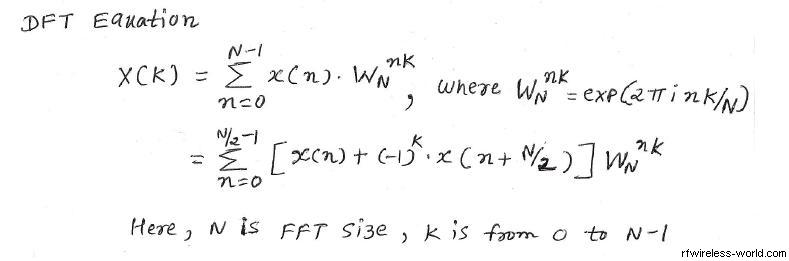 DFT Equation
X(K) = N-1 ∑ n=0 x(n). W_N^nK, where W_N^nK = exp(2πi nK/N)
= N/2-1 ∑ n=0 [x(n) + (-1)^K . x(n + N/2)] W_N^nK
Here, N is FFT size, K is from 0 to N-1
rfwireless-world.com